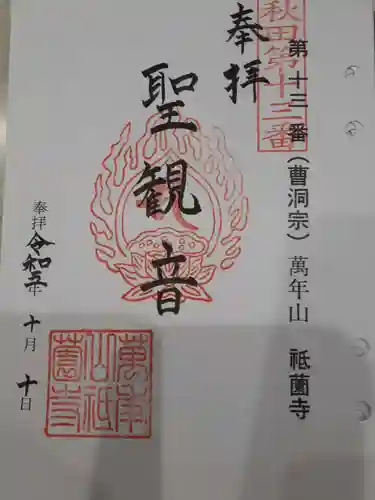 秋田第十三番
第十三番(曹洞宗)萬年山 祗園寺
奉拝
聖観音
奉拝 令和五年 十月 十日
萬年
山祗
薗寺